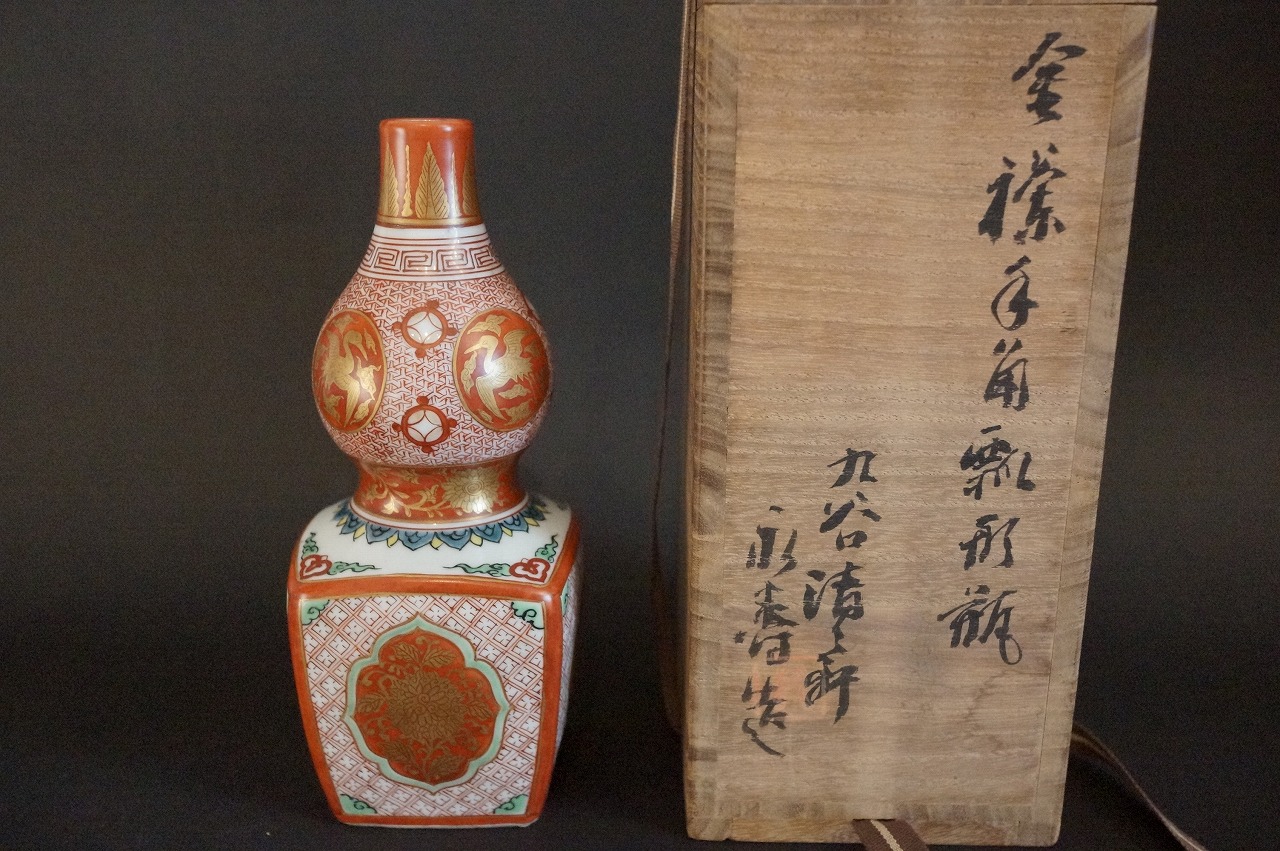 金襴手角瓢形瓶
九谷清之軒
永壽造